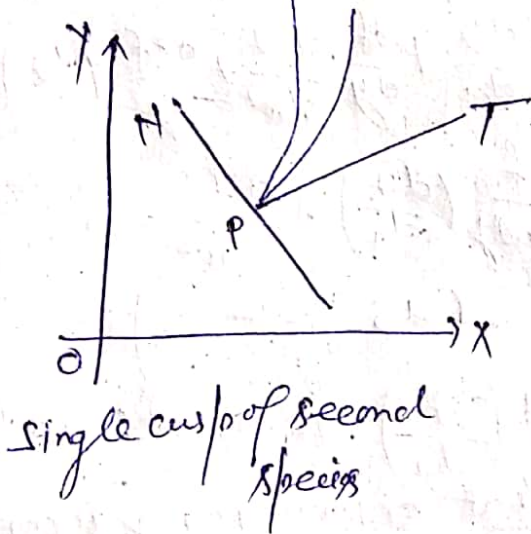 Y
N
T
P
X
O
single cusp of second
species